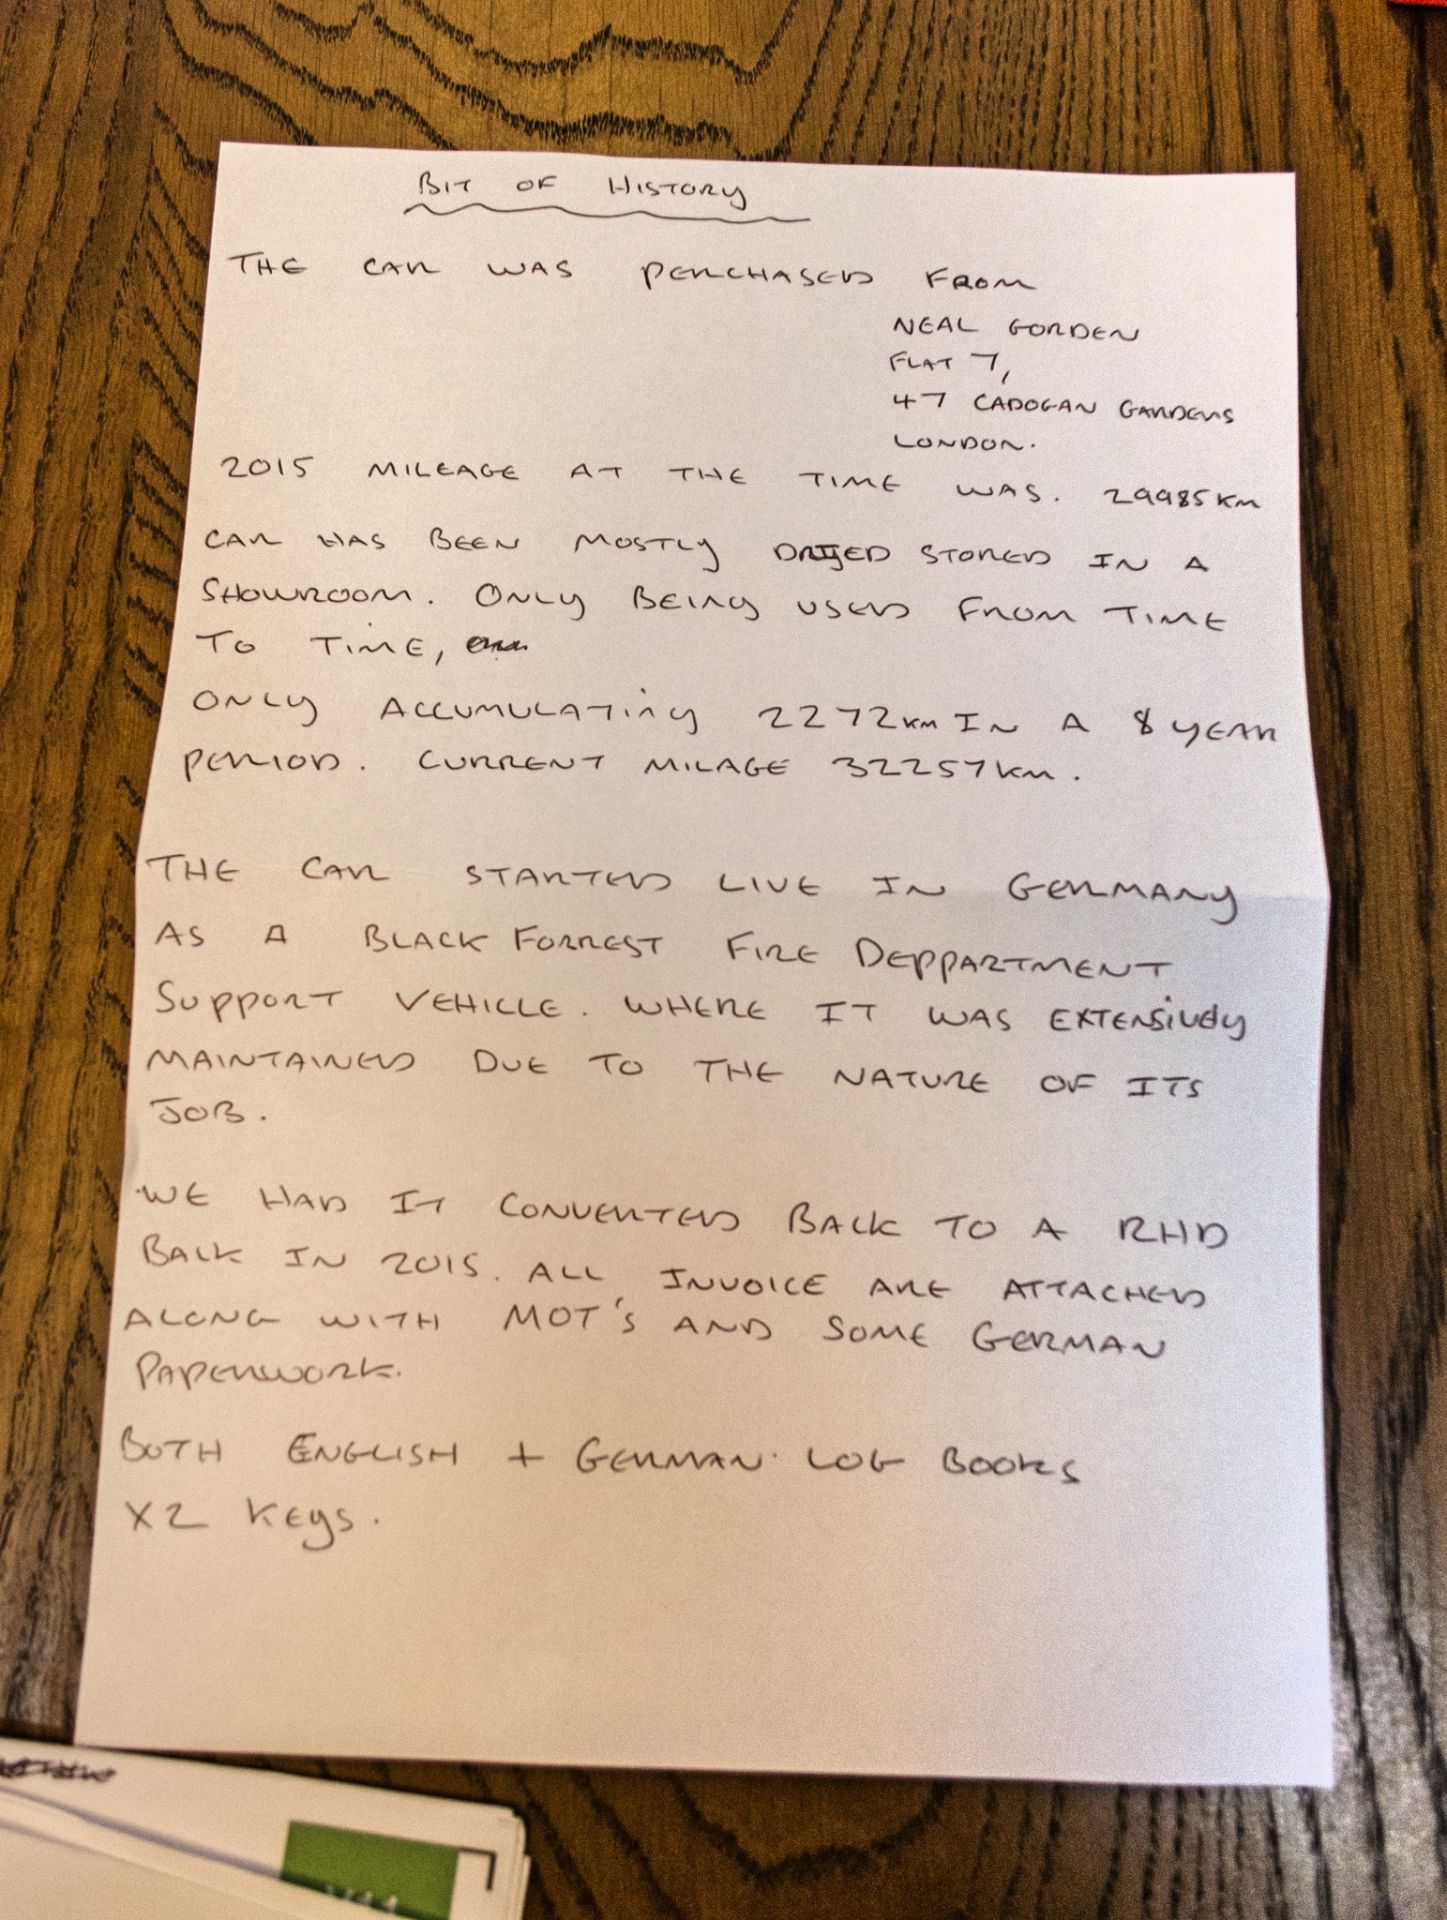 BIT OF HISTORY
THE CAR WAS PERCHASED FROM
NEAL GORDEN
FLAT 7,
47 CADOGAN GARDENS
LONDON.
2015 MILEAGE AT THE TIME WAS. 29985KM
CAR HAS BEEN MOSTLY STORED IN A
SHOWROOM. ONLY BEING USED FROM TIME
TO TIME,
ONLY ACCUMULATING 2272KM IN A 8 YEAR
PERIOD. CURRENT MILAGE 32257KM.
THE CAR STARTED LIVE IN GERMANY
AS A BLACK FORREST FIRE DEPPARTMENT
SUPPORT VEHICLE. WHERE IT WAS EXTENSIVELY
MAINTAINED DUE TO THE NATURE OF ITS
JOB.
WE HAD IT CONVERTED BACK TO A RHD
BACK IN 2015. ALL INVOICE ARE ATTACHED
ALONG WITH MOT'S AND SOME GERMAN
PAPERWORK.
BOTH ENGLISH + GERMAN LOG BOOKS
X2 KEYS.